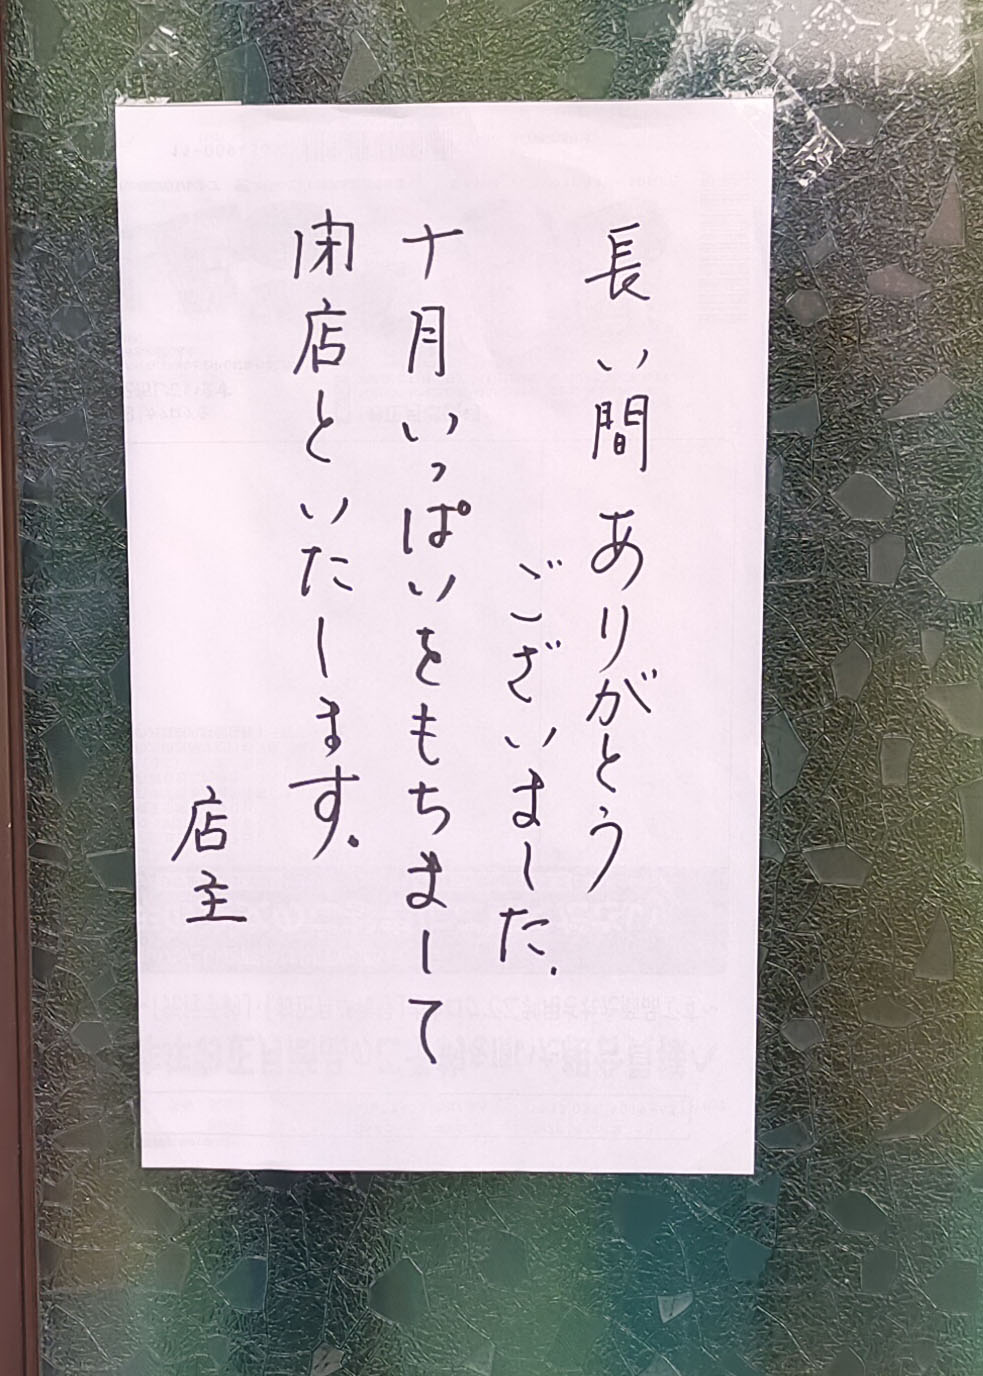 長い間ありがとう
ございました.
十月いっぱいをもちまして
閉店といたします.
店主